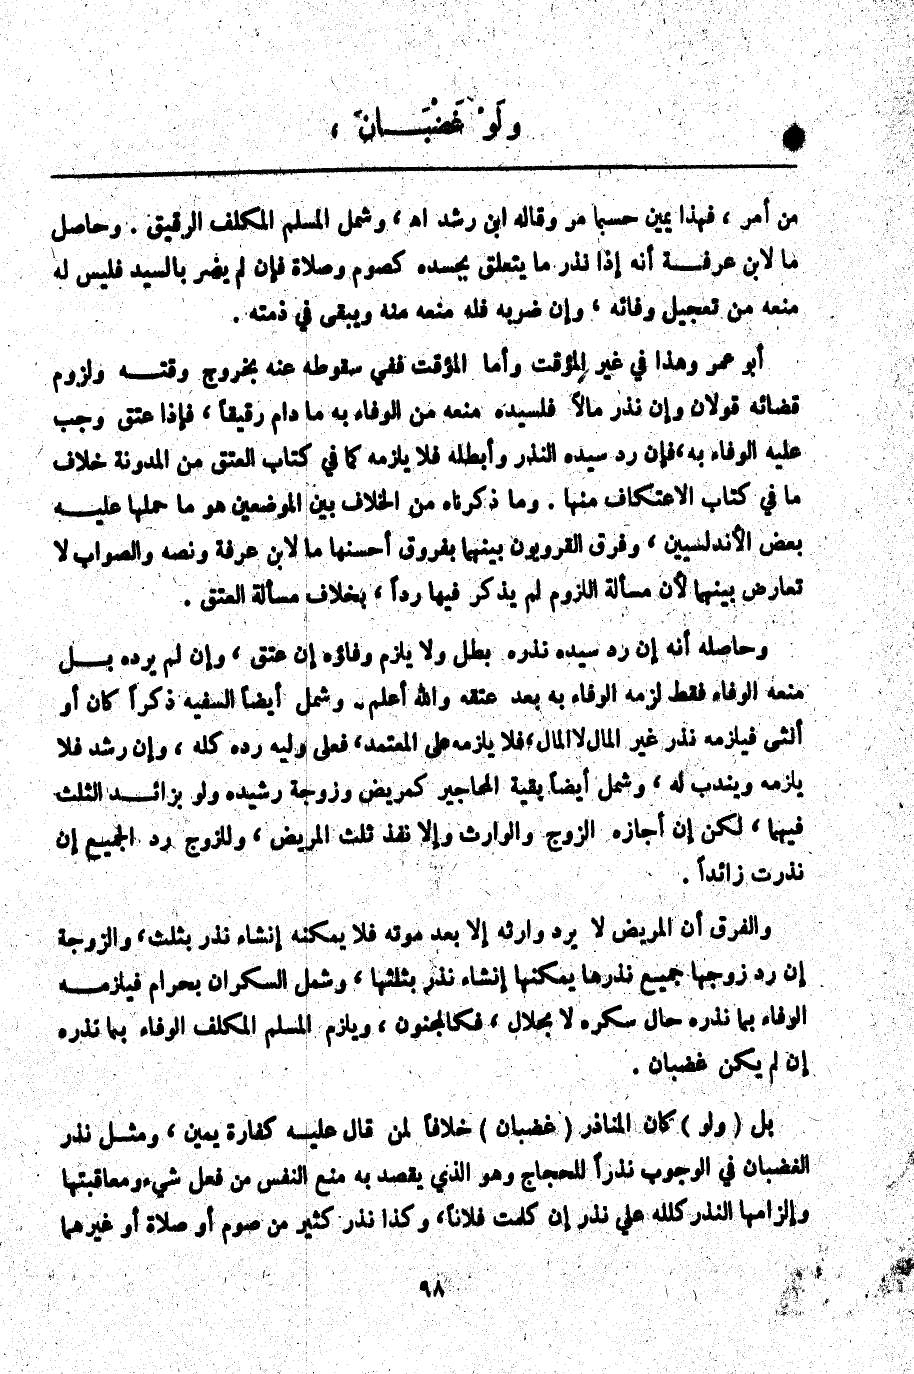 وَلَوْ غَضْبَـــانَ ،
من أمر ، فهذا يمين حسبما مر وقاله ابن رشد اه ، وشمل المسلم المكلف الرقيق . وحاصل
ما لابن عرفـــة أنه إذا نذر ما يتعلق بجسده كصوم وصلاة فإن لم يضر بالسيد فليس له
منعه من تعجيل وفائه ، وإن ضربه فله منعه منه ويبقى في ذمته .
أبو عمر وهذا في غير المؤقت وأما المؤقت ففي سقوطه عنه بخروج وقتـــه ولزوم
قضائه قولان وإن نذر مالاً فلسيده منعه من الوفاء به ما دام رقيقاً ، فإذا عتق وجب
عليه الوفاء به،فإن رد سيده النذر وأبطله فلا يلزمه كما في كتاب العتق من المدونة خلاف
ما في كتاب الاعتكاف منها . وما ذكرناه من الخلاف بين الموضعين هو ما حملها عليـــه
بعض الأندلسيين ، وفرق القرويون بينهما بفروق أحسنها ما لابن عرفة ونصه والصواب لا
تعارض بينهما لأن مسألة اللزوم لم يذكر فيها رداً ، بخلاف مسألة العتق .
وحاصله أنه إن رد سيده نذره بطل ولا يلزم وفاؤه إن عتق ، وإن لم يرده بـــل
منعه الوفاء فقط لزمه الوفاء به بعد عتقه والله أعلم . وشمل أيضاً السفيه ذكراً كان أو
أنثى فيلزمه نذر غير المال لا المال،فلا يلزمه على المعتمد، فعلى وليه رده كله ، وإن رشد فلا
يلزمه ويندب له ، وشمل أيضاً بقية المحاجير كمريض وزوجة رشيده ولو بزائـــد الثلث
فيهما ، لكن إن أجازه الزوج والوارث وإلا نفذ ثلث المريض ، وللزوج رد الجميع إن
نذرت زائداً .
والفرق أن المريض لا يرد وارثه إلا بعد موته فلا يمكنه إنشاء نذر بثلث، والزوجة
إن رد زوجها جميع نذرها يمكنها إنشاء نذر بثلثها ، وشمل السكران بحرام فيلزمـــه
الوفاء بما نذره حال سكره لا بحلال ، فكالمجنون ، ويلزم المسلم المكلف الوفاء بما نذره
إن لم يكن غضبان .
بل ( ولو ) كان الناذر ( غضبان ) خلافاً لمن قال عليـــه كفارة يمين ، ومثـــل نذر
الغضبان في الوجوب نذراً للحجاج وهو الذي يقصد به منع النفس من فعل شيء ومعاقبتها
وإلزامها النذر كلله علي نذر إن كلمت فلاناً، وكذا نذر كثير من صوم أو صلاة أو غيرهما
٩٨